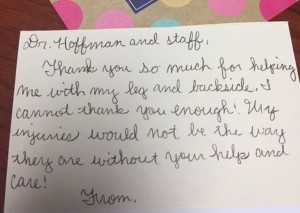 Dr. Hoffman and staff,
Thank you so much for helping
me with my leg and backside. I
cannot thank you enough! My
injuries would not be the way
they are without your help and
care!
From,